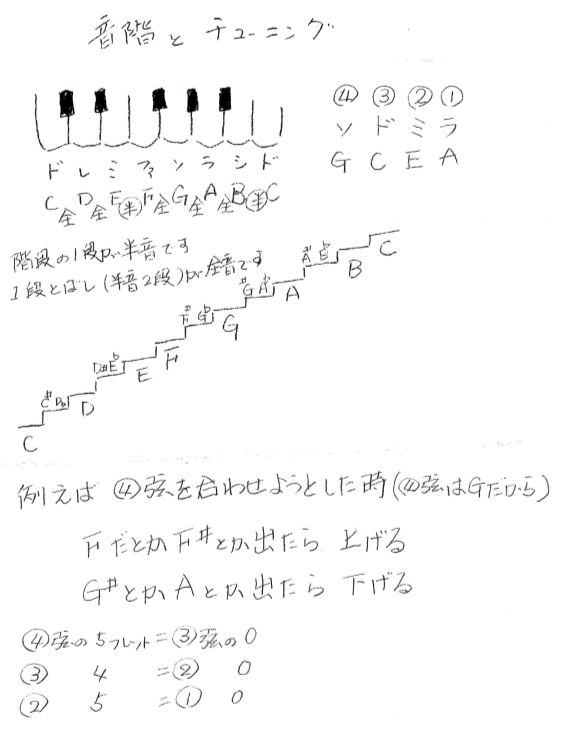 音階と チューニング
④ ③ ② ①
ソ ド ミ ラ
G C E A
ド レ ミ ファ ソ ラ シ ド
C 全 D 全 E 半 F 全 G 全 A 全 B 半 C
階段の1段が半音です
1段とばし(半音2段)が全音です
C C# D♭ D D# E♭ E F F# G♭ G G# A♭ A A# B♭ B C
例えば ④弦を合わせようとした時(④弦はGだから)
FだとかF#とか出たら 上げる
G#とかAとか出たら 下げる
④弦の5フレット=③弦の0
③ 4 =② 0
② 5 =① 0